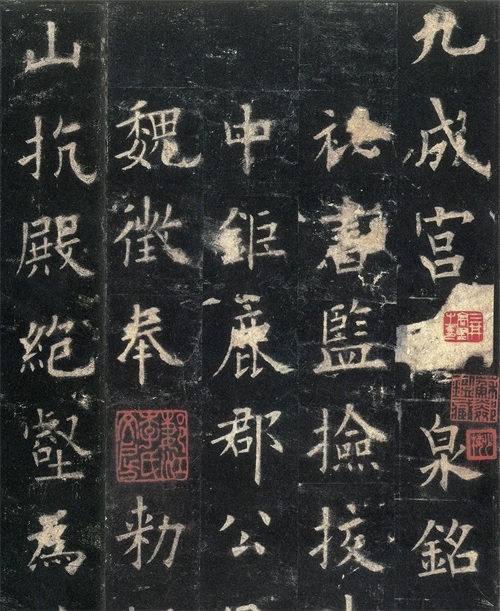 九成宮泉銘
祕書監撿挍
中鉅鹿郡公
魏徵奉勑
山抗殿絕壑為